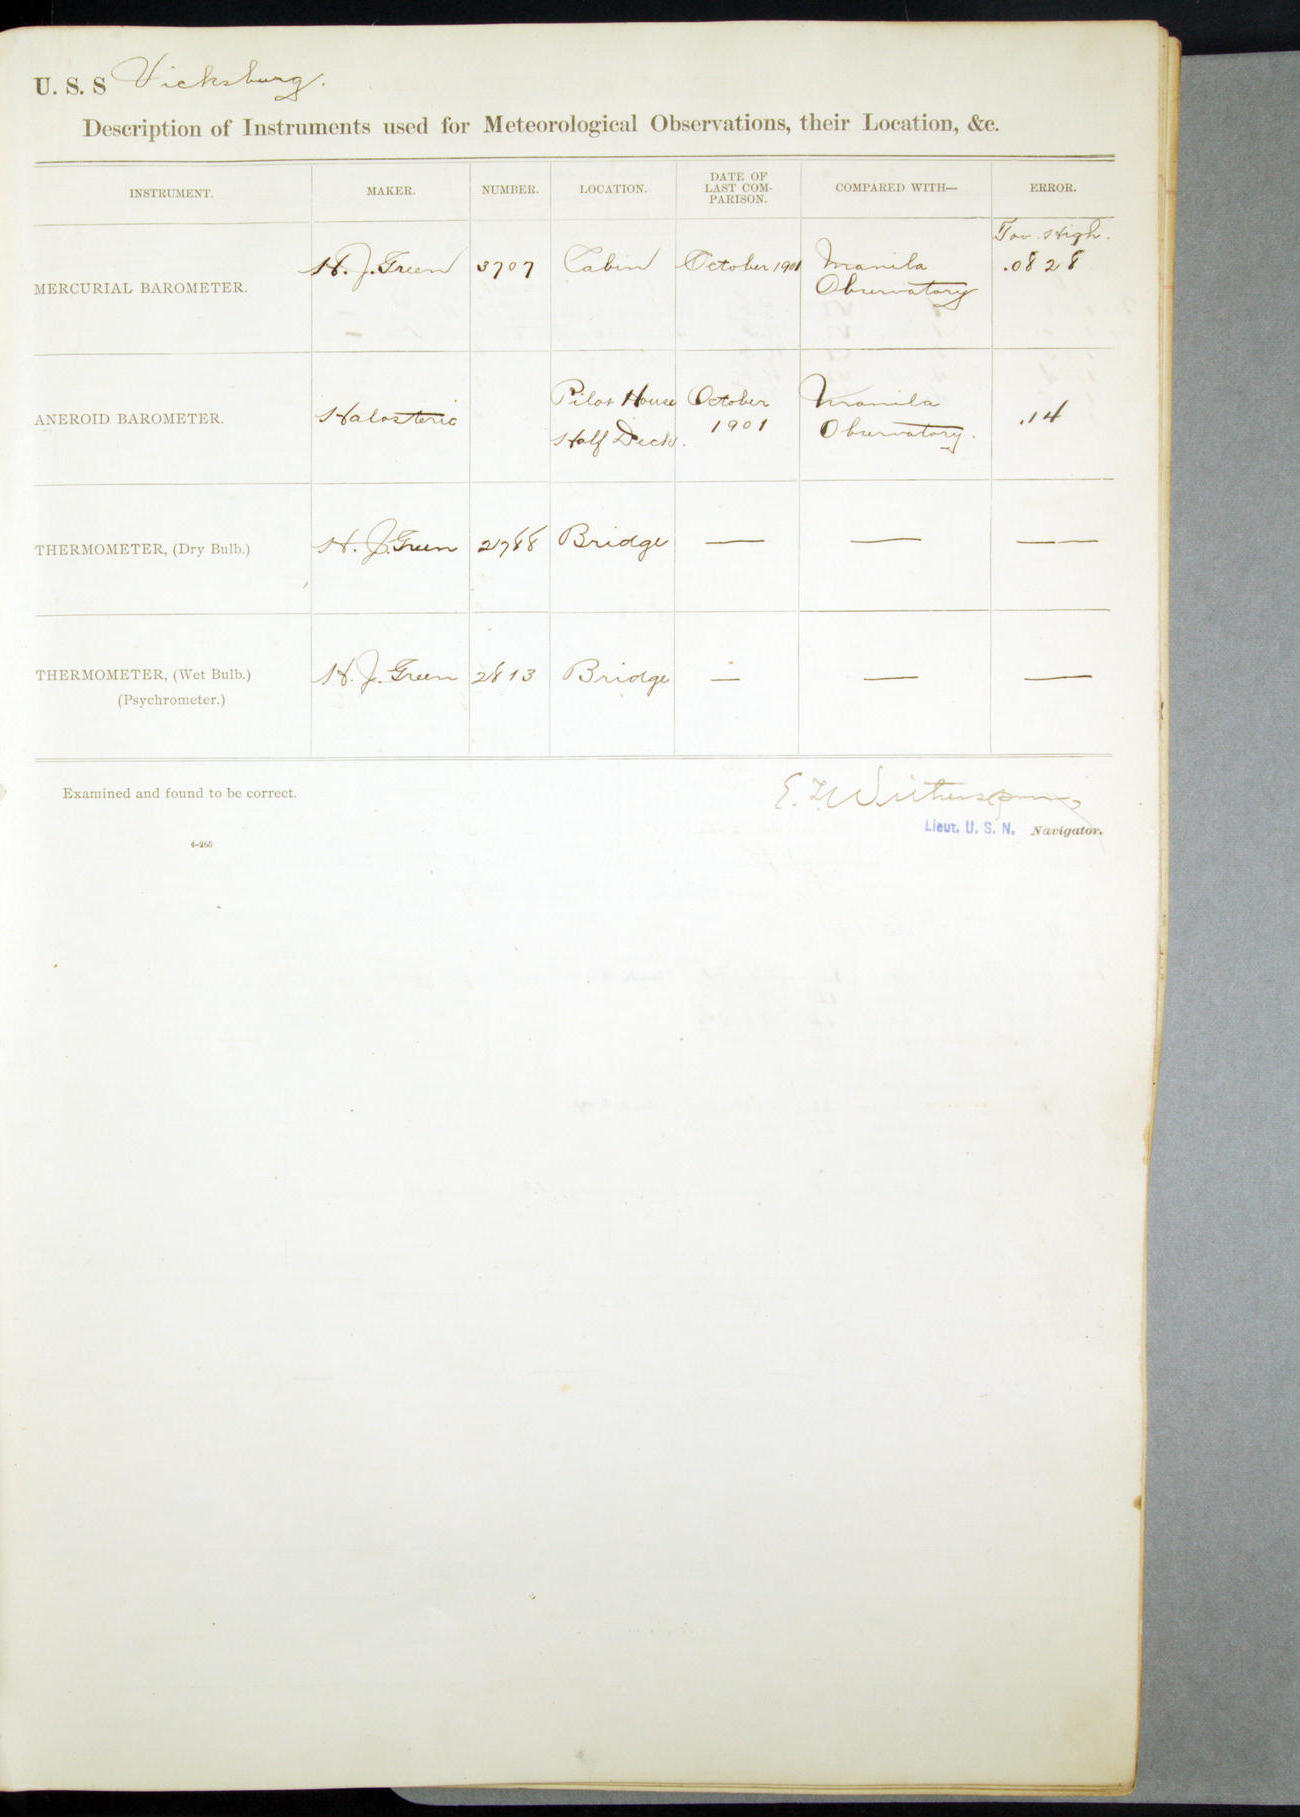 U. S. S Vicksburg.
Description of Instruments used for Meteorological Observations, their Location, &c.
INSTRUMENT. MAKER. NUMBER. LOCATION. DATE OF LAST COMPARISON. COMPARED WITH— ERROR.
Too High.
MERCURIAL BAROMETER. H. J. Green 3707 Cabin October 1901 Manila Observatory .0828
ANEROID BAROMETER. Halosteric Pilot House Half Deck. October 1901 Manila Observatory. .14
THERMOMETER, (Dry Bulb.) H. J. Green 2788 Bridge — — — —
THERMOMETER, (Wet Bulb.) H. J. Green 2813 Bridge — — —
(Psychrometer.)
Examined and found to be correct. E. L. Witherspoon
Lieut. U. S. N. Navigator.
4—265